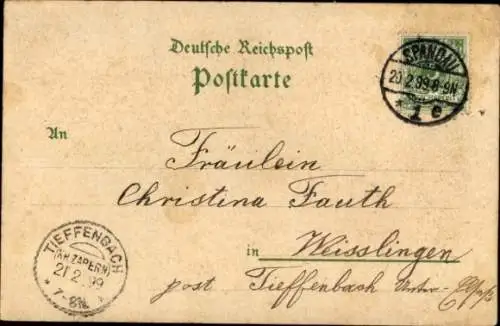 Deutsche Reichspost
Postkarte
SPANDAU
20.2.99.8-9N.
* 1 e
An
Fräulein
Christina Fauth
in Weisslingen
post Tieffenbach Unter-Elsaß
TIEFFENBACH
(KR ZABERN)
21 2 99
* 7-8N *